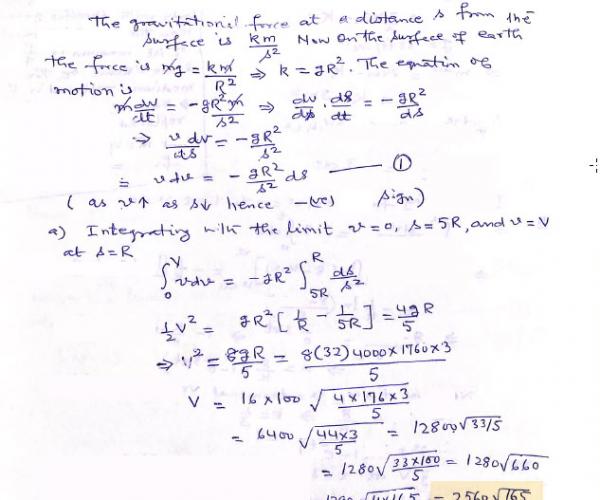 The gravitational force at a distance s from the
surface is km/s² Now on the surface of earth
the force is mg = km/R² ⇒ k = gR². The equation of
motion is
m dv/dt = -gR²m/s² ⇒ dv/ds · ds/dt = -gR²/ds
⇒ v dv/ds = -gR²/s²
∴ vdv = -gR²/s² ds —— ①
( as v↑ as s↓ hence -(ve) sign)
a) Integrating with the limit v = 0, s = 5R, and v = V
at s = R
∫₀^V vdv = -gR² ∫_5R^R ds/s²
½V² = gR² [1/R - 1/5R] = 4gR/5
⇒ V² = 8gR/5 = 8(32)4000×1760×3/5
V = 16×100 √(4×176×3/5)
= 6400 √(44×3/5) = 12800√33/5
= 1280√(33×100/5) = 1280√660
= 2560√165